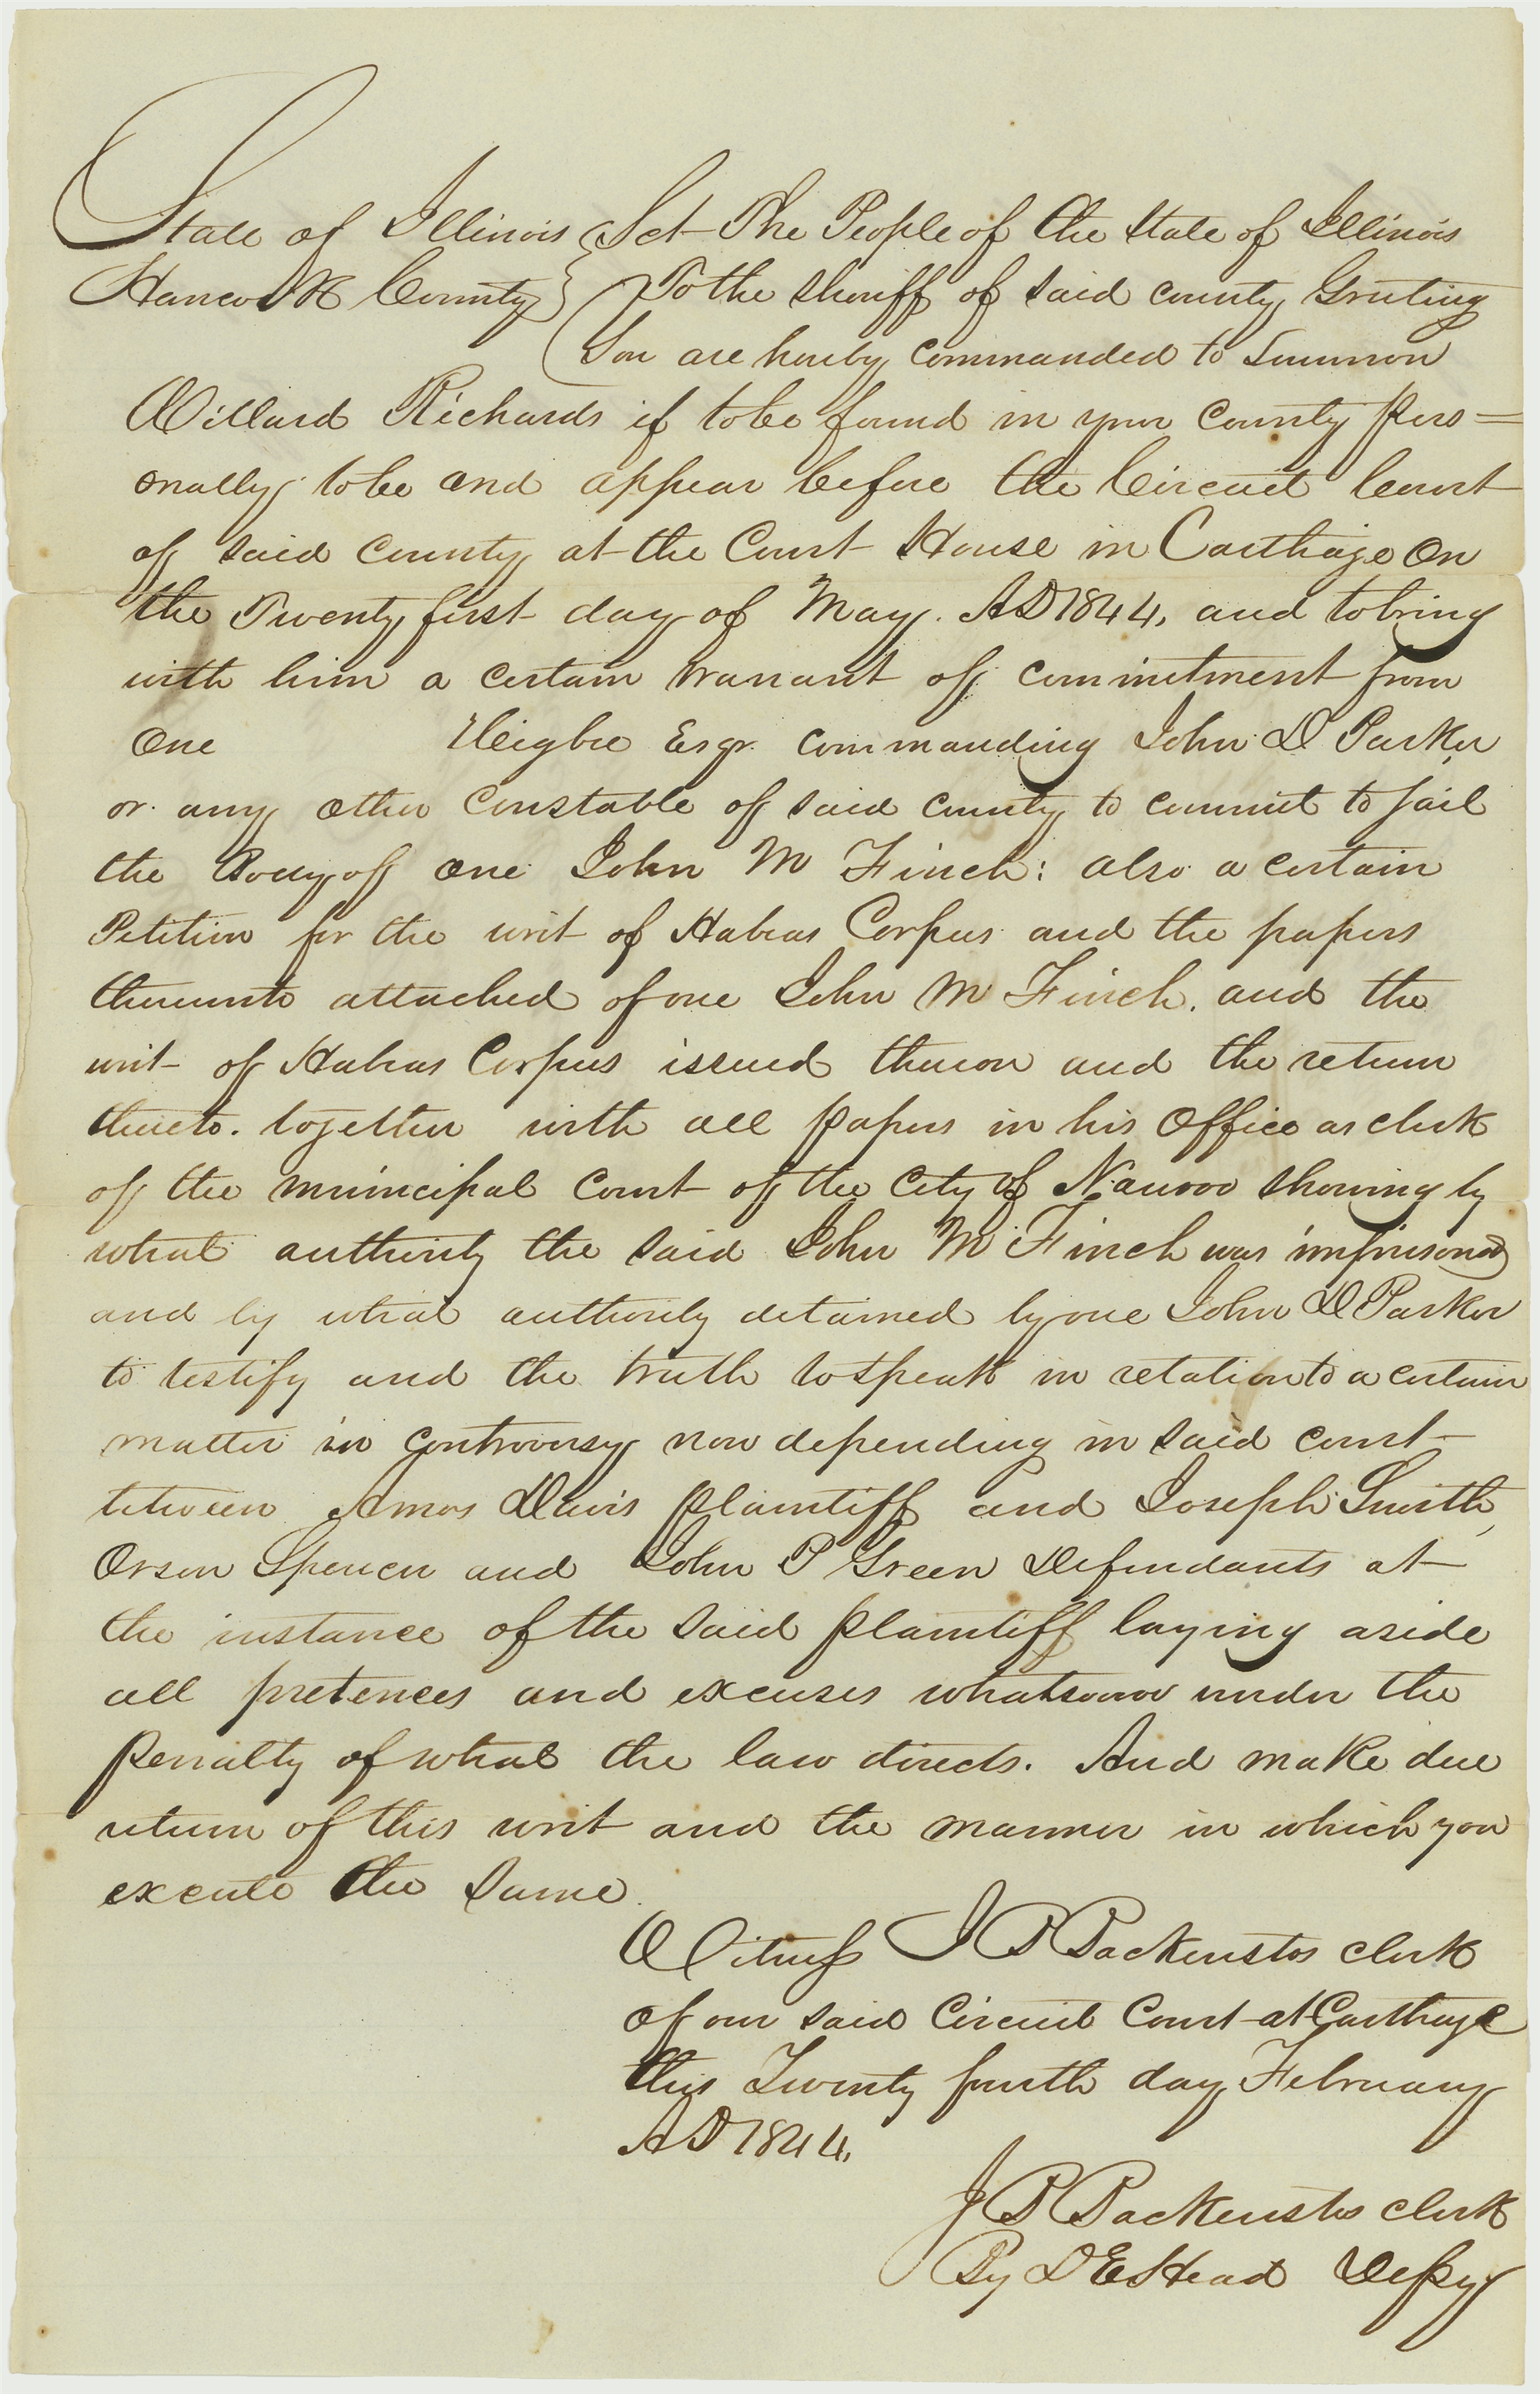 State of Illinois } Sct The People of the State of Illinois
Hancock County } To the Sheriff of said county Greeting
You are hereby commanded to Summon
Willard Richards if to be found in your county pers=
onally to be and appear before the Circuit Court
of said county at the Court House in Carthage on
the Twenty first day of May. AD 1844, and to bring
with him a certain warrant of commitment from
one Heigbee Esqr. commanding John D Parker
or any other constable of said county to commit to Jail
the Body of one John M Finch: also a certain
Petition for the writ of Habeas Corpus and the papers
thereunto attached of one John M Finch. and the
writ of Habeas Corpus issued thereon and the return
thereto. together with all papers in his office as clerk
of the municipal court of the city of Nauvoo showing by
what authority the said John M Finch was imprisoned
and by what authority detained by one John D Parker
to testify and the truth to speak in relation to a certain
matter in controversy now depending in said court
between Amos Davis plaintiff and Joseph Smith,
Orson Spencer and John P Green Defendants at
the instance of the said plaintiff laying aside
all pretences and excuses whatsoever under the
penalty of what the law directs. And make due
return of this writ and the manner in which you
execute the same.
Witness J B Backenstos clerk
of our said Circuit Court at Carthage
this Twenty fourth day February
AD 1844,
J B Backenstos clerk
By D E Head Depy